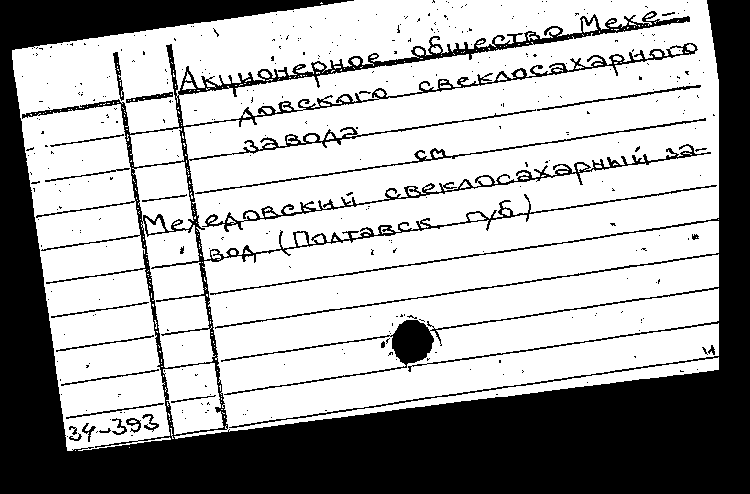 Акционерное общество Мехе-
довского свеклосахарного
завода
см.
Мехедовский свеклосахарный за-
вод (Полтавск. губ.)
и
34-393